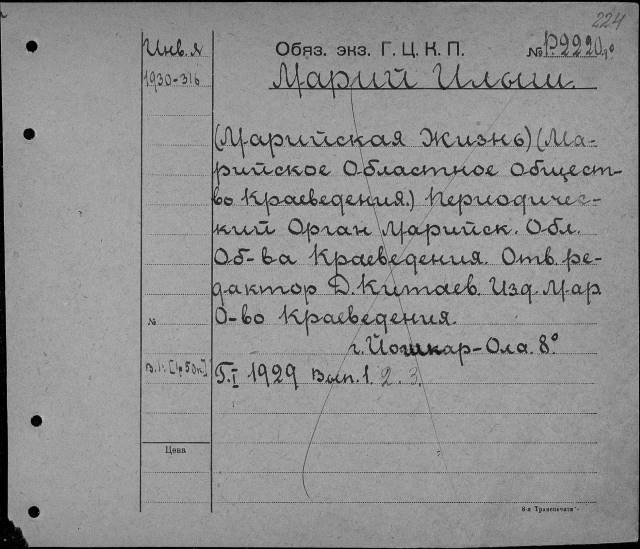 224
Инв. я
Обяз. экз. Г. Ц. К. П.
№ Р2220, 8°
1930-316
Марий Илыш.
(Марийская Жизнь) (Ма-
рийское Областное Общест-
во Краеведения.) Периодичес-
кий Орган Марийск. Обл.
Об-ва Краеведения. Отв. ре-
дактор Д. Китаев. Изд. Мар
О-во Краеведения.
№
г. Йошкар-Ола. 8°
В.1: [1р50к]
Г.I 1929 Вып. 1. 2. 3.
Цена
8-я Транспечати